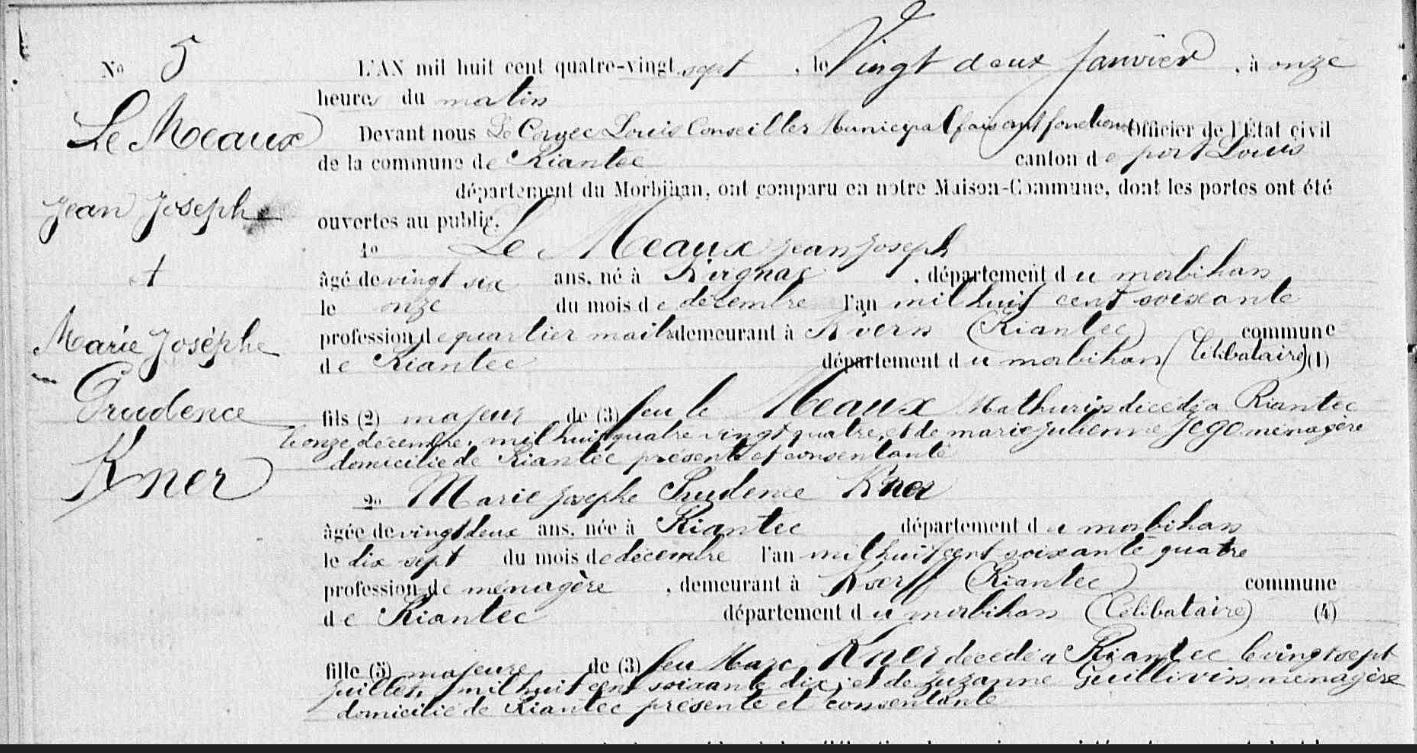 No 5
Le Meaux
Jean Joseph
et
Marie Josèphe
Prudence
Kner
L'AN mil huit cent quatre-vingt sept, le Vingt deux Janvier, à onze
heures du matin
Devant nous Le Corvec Louis Conseiller Municipal faisant fonctions Officier de l'État civil
de la commune de Riantec canton de port Louis
département du Morbihan, ont comparu en notre Maison-Commune, dont les portes ont été
ouvertes au public.
1o Le Meaux jean joseph
âgé de vingt six ans, né à, département du morbihan
le onze du mois de décembre l'an mil huit cent soixante
profession de quartier maitre demeurant à Kvern (Riantec) commune
de Riantec département du morbihan (Célibataire) (1)
fils (2) majeur de (3) feu le Meaux Mathurin décédé a Riantec
le onze décembre, mil huit quatre vingt quatre, et de marie julienne Jego ménagère
domicilié de Riantec présente et consentante
2o Marie josephe Prudence Kner
âgée de vingt deux ans, née à Riantec département du morbihan
le dix sept du mois de décembre l'an mil huit cent soixante quatre
profession de ménagère, demeurant à (Riantec) commune
de Riantec département du morbihan (Célibataire) (4)
fille (5) majeure de (3) feu Marc Kner décédé a Riantec le vingt sept
juillet, mil huit cent soixante dix, et de Suzanne Guillivin ménagère
domicilié de Riantec présente et consentante